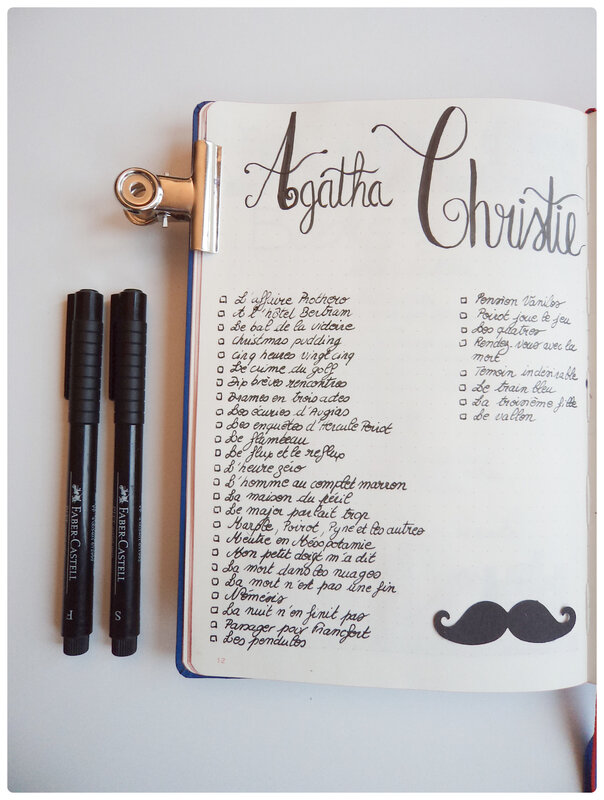 Agatha Christie
L'affaire Prothero
A l'hôtel Bertram
Le bal de la victoire
Christmas pudding
Cinq heures vingt cinq
Le crime du golf
Dix brèves rencontres
Drames en trois actes
Les écuries d'Augias
Les enquêtes d'Hercule Poirot
Le flambeau
Le flux et le reflux
L'heure zéro
L'homme au complet marron
La maison du péril
Le major parlait trop
Marple, Poirot, Pyne et les autres
Meutre en Mésopotamie
Mon petit doigt m'a dit
La mort dans les nuages
La mort n'est pas une fin
Némésis
La nuit n'en finit pas
Passager pour Francfort
Les pendules
12
Pension Vanilos
Poirot joue le jeu
Les quatres
Rendez vous avec la
mort
Témoin indésirable
Le train bleu
La troisième fille
Le vallon
FABER-CASTELL
F
FABER-CASTELL
S